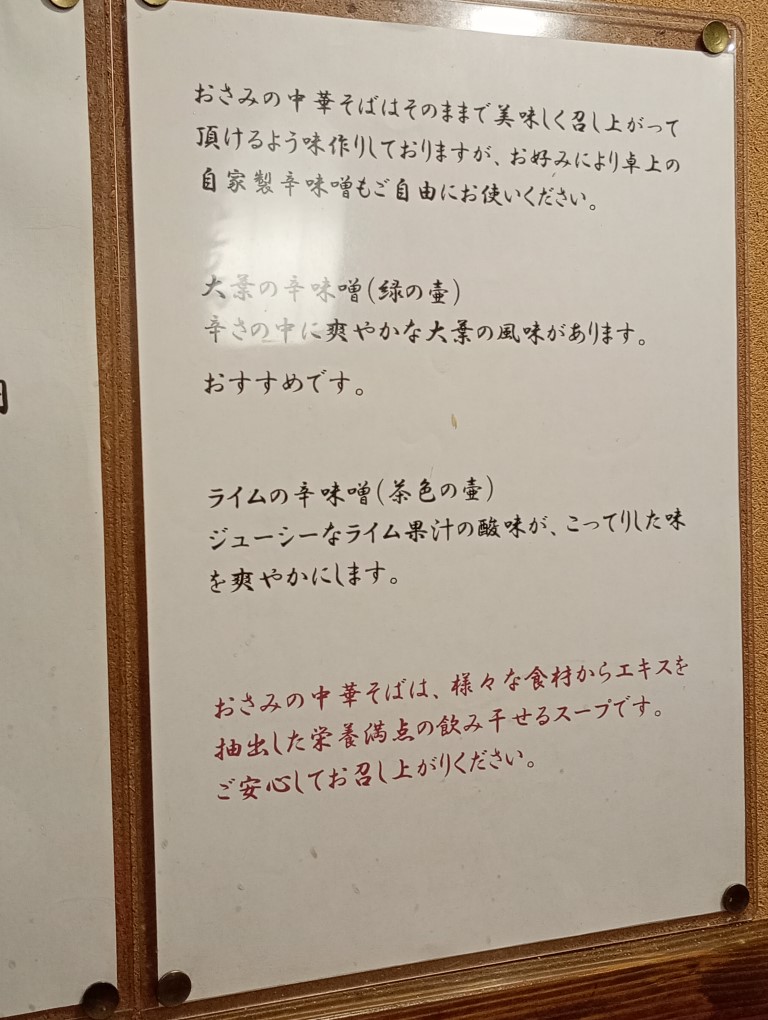 おさみの中華そばはそのままで美味しく召し上がって
頂けるよう味作りしておりますが、お好みにより卓上の
自家製辛味噌もご自由にお使いください。
大葉の辛味噌(緑の壷)
辛さの中に爽やかな大葉の風味があります。
おすすめです。
ライムの辛味噌(茶色の壷)
ジューシーなライム果汁の酸味が、こってりした味
を爽やかにします。
おさみの中華そばは、様々な食材からエキスを
抽出した栄養満点の飲み干せるスープです。
ご安心してお召し上がりください。